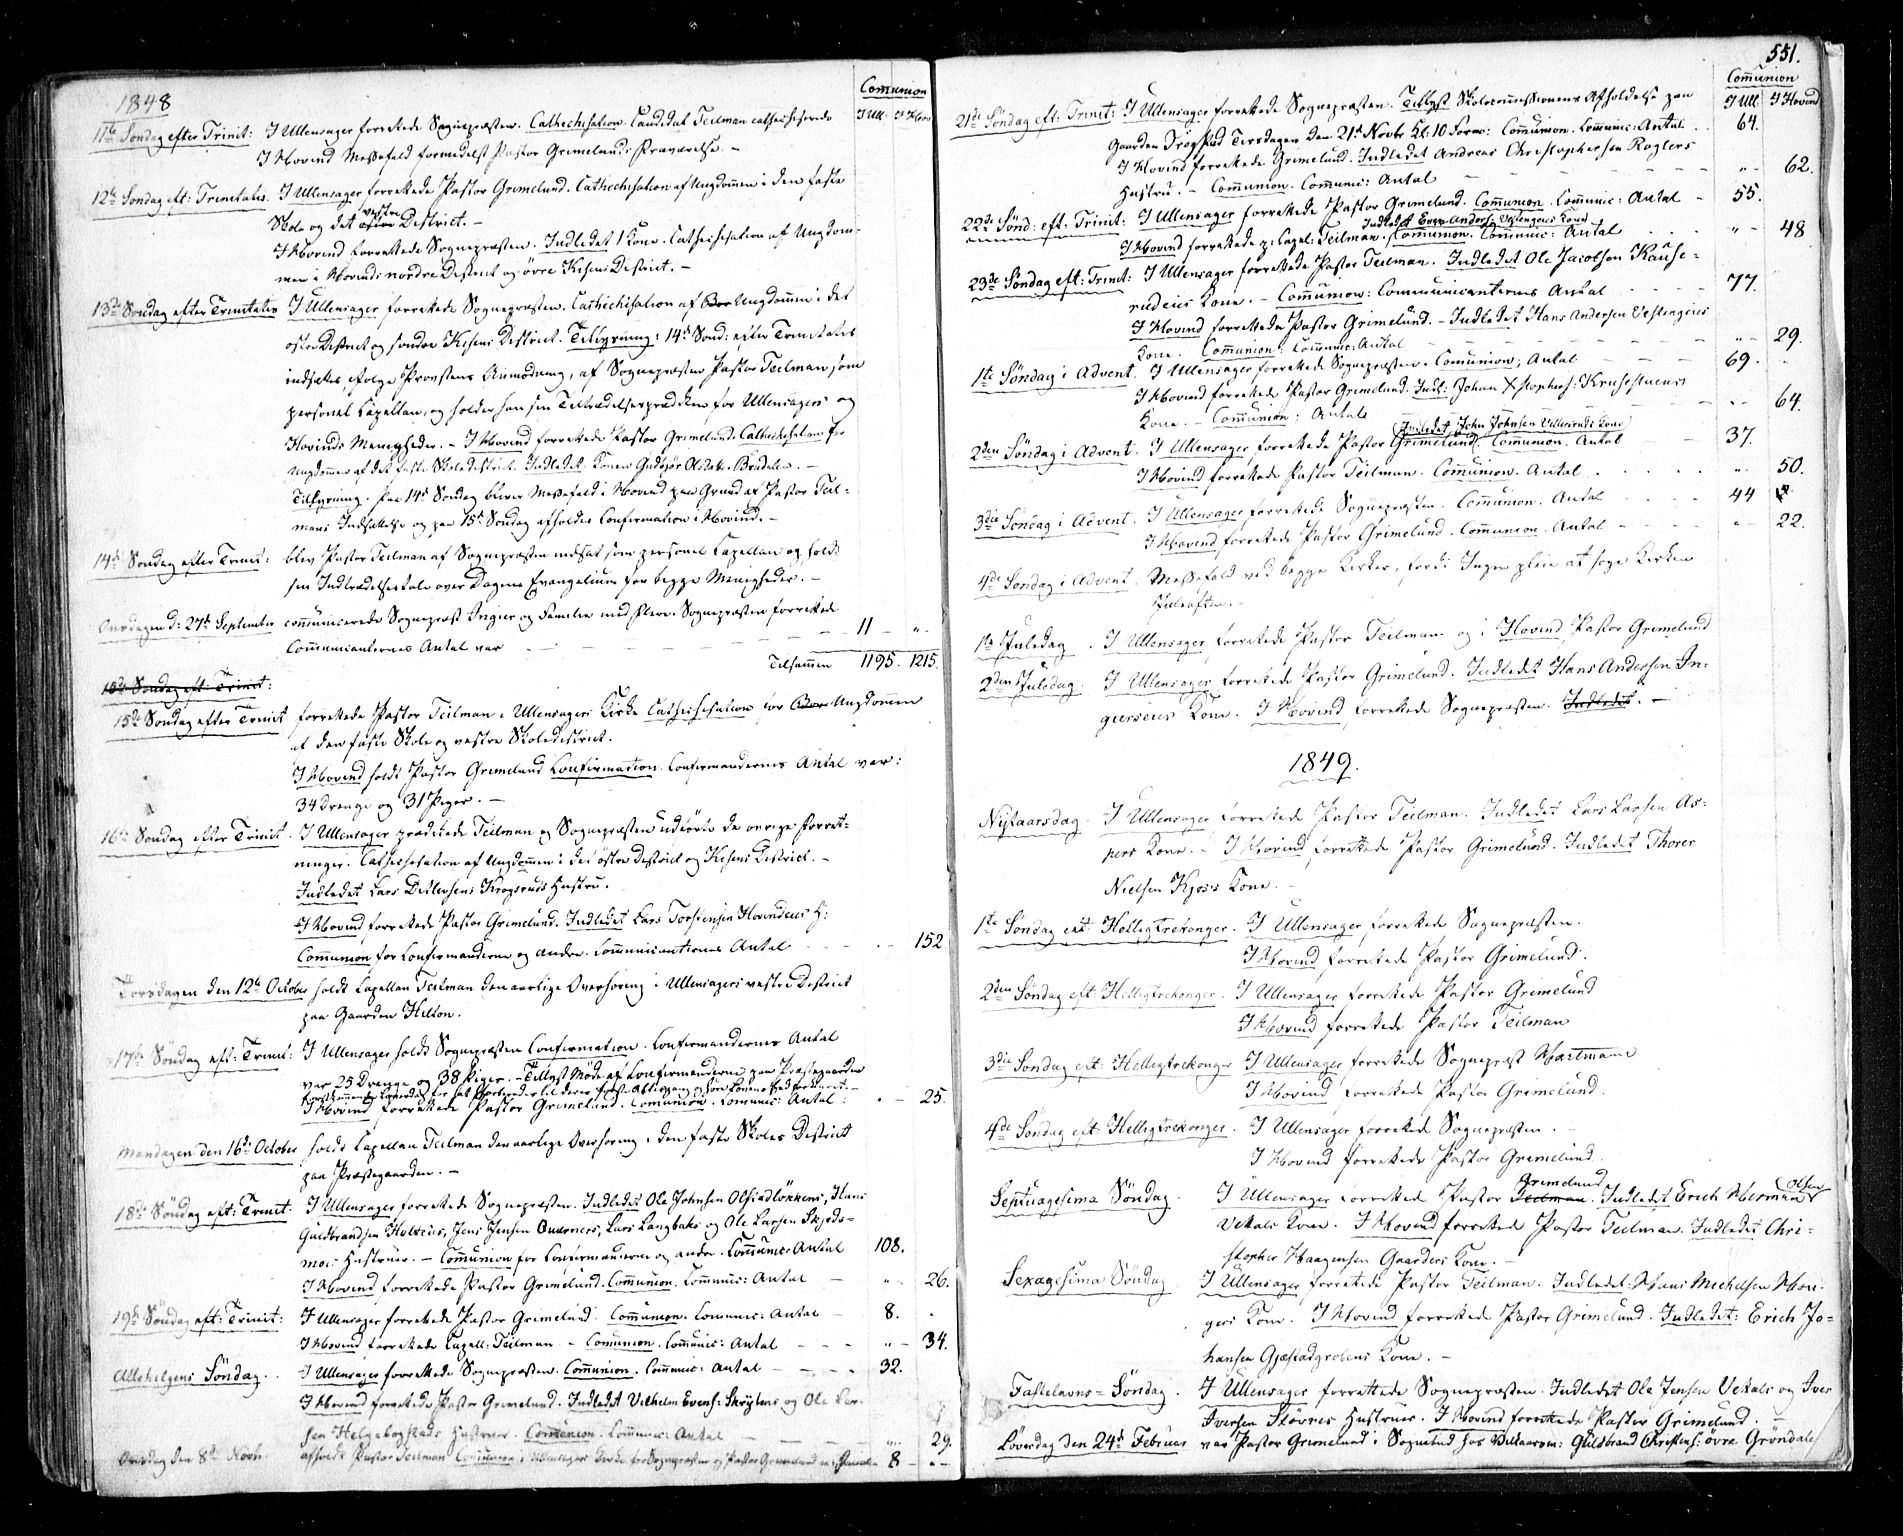 1848
Communion
I Ull: I Hov:
11te Søndag efter Trinit: I Ullensager forrettede Sognepræsten. Cathechisation. Candidat Teilman cathechiserede
I Hovind Messefald formedelst Pastor Grimelunds Fraværelse. –
12te Søndag eft: Trinitatis. I Ullensager forrettede Pastor Grimelund. Cathechisation af Ungdommen i den faste
Skole og det vestre District. –
I Hovind forrettede Sognepræsten. Indledet 1 Kone. Cathechisation af Ungdom-
men i Hovinds nordre District og øvre Kisens District. –
13de Søndag efter Trinitatis I Ullensager forrettede Sognepræsten. Cathechisation af Ungdommen i det
østre District og søndre Kisens District. Tillysning: 14de Sønd: efter Trinitatis
indsættes, ifølge Provstens Anmodning, af Sognepræsten Pastor Teilman som
personel Capellan, og holder han sin Tiltrædelsesprædiken for Ullensagers og
Hovinds Menigheder. – I Hovind forrettede Pastor Grimelund. Cathechisation for
Ungdommen af det faste Skoledistrict. Indledet: Konen Gudbjør Olsdatt: Brudalen. –
Tillysning. Paa 14de Søndag bliver Messefald i Hovind paa Grund af Pastor Teil-
mans Indsættelse og paa 15de Søndag afholdes Confirmation i Hovind. –
14de Søndag efter Trinit: blev Pastor Teilman af Sognepræsten indsat som personel Capellan og holdt
sin Indtrædelsestale over Dagens Evangelium for begge Menigheder. –
Onsdagen d: 27de September communicerede Sognepræst Ingier og Familie med flere. Sognepræsten forrettede
Communicanternes Antal var – – – 11 – „
Tilsammen 1195. 1215.
15de Søndag eft: Trinit:
15de Søndag efter Trinit forrettede Pastor Teilman i Ullensagers Kirke Cathechisation for Ungdommen
af den faste Skole og vestre Skoledistrict.
I Hovind holdt Pastor Grimelund Confirmation. Confirmandernes Antal var:
34 Drenge og 31 Piger. –
16de Søndag efter Trinit. I Ullensager prædikede Teilman og Sognepræsten udførte de øvrige Forret-
ninger. Cathechisation af Ungdommen i det østre District og Kisens District. –
Indledet Lars Detlevsens Krogsruds Hustru.
I Hovind forrettede Pastor Grimelund. Indledet Lars Torstensen Hovindeies H:
Communion for Confirmanderne og andre. Communicanternes Antal – – 152
Torsdagen den 12te October holdt Capellan Teilman den aarlige Overhøring i Ullensagers vestre District
paa Gaarden Hilton.
17de Søndag eft: Trinit: I Ullensager holdt Sognepræsten Confirmation. Confirmandernes Antal
var 25 Drenge og 38 Piger. – Tillyst Møde af Confirmanderne paa Præstegaarden
I Hovind forrettede Pastor Grimelund. Communion. Commnic: Antal: – 25.
Mandagen den 16de October holdt Capellan Teilman den aarlige Overhøring i den faste Skoles District
paa Præstegaarden. –
18de Søndag eft: Trinit. I Ullensager forrettede Sognepræsten. Indledet Ole Johnsen Olstadløkkens, Hans
Guldbrandsen Holteies, Jens Jensen Qværners, Lars Langbaks og Ole Larsen Skjeds-
moe: Hustruer. – Communion for Confirmanderne og andre. Commnic: Antal 108.
I Hovind forrettede Pastor Grimelund. Communion. Commnic: Antal – „ 26.
19de Søndag eft: Trinit: I Ullensager forrettede Pastor Grimelund. Communion. Communic: Antal – 8. .
I Hovind forrettede Capell: Teilman. – Communion. Communic: Antal – – „ – 34.
Allehelgens Søndag. I Ullensager forrettede Sognepræsten. Communion. Communic: Antal – – 32.
I Hovind forrettede Pastor Grimelund. Indledet Vilhelm Evens: Skrylens og Ole Lar-
sen Helgebostads Hustruer. Communion. Communic: Antal – „ 29.
Onsdag den 8de Novbr. afholdt Pastor Teilman Communion i Ullensager Kirke for Sognepræsten og Pastor Grimelund – 8 – „
551.
Communion
I Ull I Hovind
21de Søndag eft: Trinit: I Ullensager forrettede Sognepræsten. Tillyst Skolecommissionens Afholdelse paa
Gaarden Drøgstad Tirsdagen den 21de Novbr Kl: 10 Form: Communion. Communic: Antal . . 64.
I Hovind forrettede Grimelund. Indledet Andreas Christophersen Roglers
Hustru. – Communion. Communic: Antal – – – „ 62.
22de Sønd: eft: Trinit: I Ullensager forrettede Pastor Grimelund. Communion. Communic: Antal – 55.
Indledet Even Anders: Vestengeies Kone
I Hovind forrettede p: Capel: Teilman. Communion. Communic: Antal . . „ – 48
23de Søndag eft: Trinit: I Ullensager forrettede Pastor Teilman. Indledet Ole Jacobsen Kause-
rudeies Kone. – Communion: Communicanternes Antal . . 77.
I Hovind forrettede Pastor Grimelund. – Indledet Hans Andersen Vestengeies
Kone. Communion: Communic: Antal – – – „ 29.
1te Søndag i Advent. I Ullensager forrettede Sognepræsten. Communion; Antal – – 69. „
I Hovind forrettede Pastor Grimelund. Indl: Johan Xstophers: Kruusstuens
Kone. – Communion: Antal – – „ 64.
Indledet John Johnsen Villeruds Kone
2den Søndag i Advent. I Ullensager forrettede Pastor Grimelund. Communion. Antal – 37.
I Hovind forrettede Pastor Teilman. Communion. Antal . . . „ 50.
3die Søndag i Advent. I Ullensager forrettede Sognepræsten. Communion. Antal . . 44
I Hovind forrettede Pastor Grimelund. Communion. Antal – – „ 22.
4de Søndag i Advent. Messefald ved begge Kirker, fordi Ingen pleie at søge Kirken
Juleaften. –
1te Juledag. I Ullensager forrettede Pastor Teilman og i Hovind Pastor Grimelund
2den Juledag. I Ullensager forrettede Pastor Grimelund. Indledet Hans Andersen In-
gierseies Kone. I Hovind forrettede Sognepræsten. Indledet. –
1849.
Nytaarsdag. I Ullensager forrettede Pastor Teilman. Indledet Lars Larsen As-
pers Kone. – I Hovind forrettede Pastor Grimelund. Indledet Thorer
Nielsen Kjos's Kone. –
1te Søndag eft: Helligtrekonger. I Ullensager forrettede Sognepræsten.
I Hovind forrettede Pastor Grimelund.
2den Søndag eft: Helligtrekonger. I Ullensager forrettede Pastor Grimelund
I Hovind forrettede Pastor Teilman
3die Søndag eft: Helligtrekonger I Ullensager forrettede Sognepræst Hartmann
I Hovind forrettede Pastor Grimelund.
4de Søndag eft: Helligtrekonger. I Ullensager forrettede Sognepræsten. –
I Hovind forrettede Pastor Grimelund.
Septuagesima Søndag. I Ullensager forrettede Pastor Teilman Grimelund. Indledet Erich Herman Olsen
Vekals Kone. I Hovind forrettede Pastor Teilman. Indledet Chri-
stopher Haagensen Gaarders Kone. –
Sexagesima Søndag I Ullensager forrettede Pastor Teilman. Indledet: Hans Michelsen Hau-
gers Kone. I Hovind forrettede Pastor Grimelund. Indledet: Erich Jo-
hansen Gjæstadgrobens Kone. –
Fastelavns-Søndag. I Ullensager forrettede Sognepræsten. Indledet Ole Jensen Vekals og Iver
Iversen Støvres Hustruer. I Hovind forrettede Pastor Grimelund. –
Løverdag den 24de Februar var Pastor Grimelund i Sognebud hos Vilkaarsm: Guldbrand Christens: øvre Grøndale